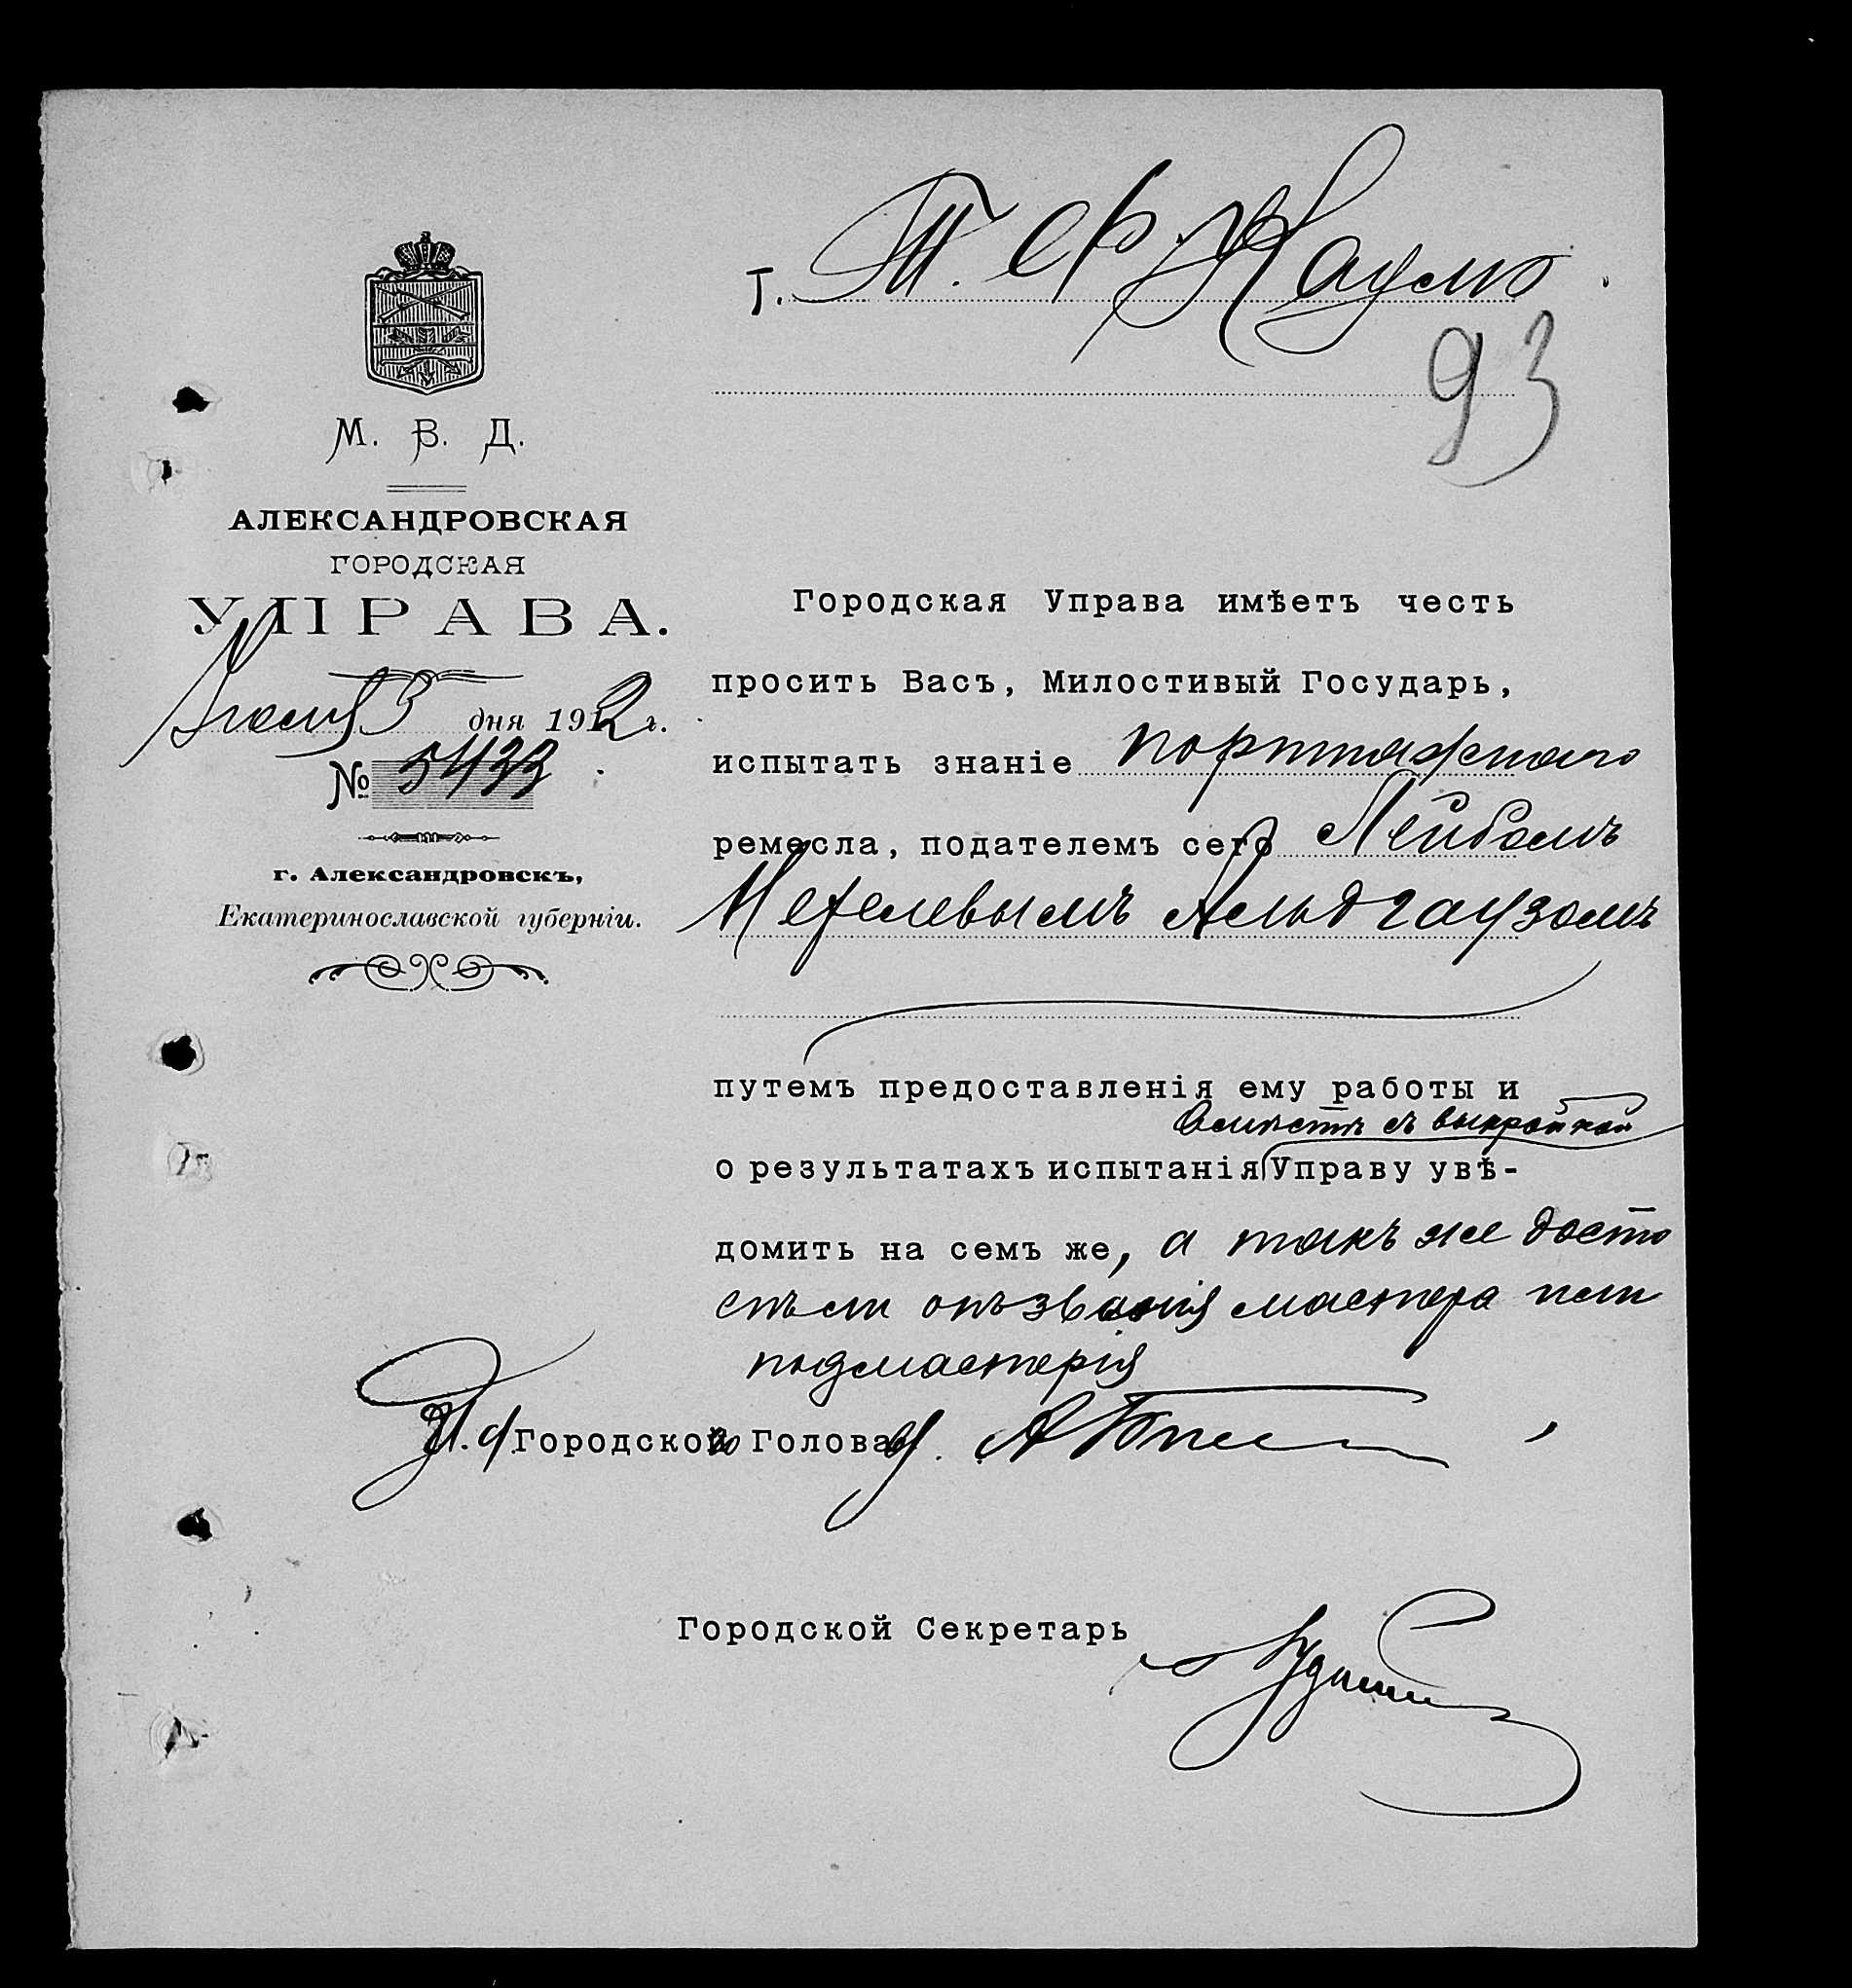 г. Т. Ф. Наумъ.
93
М. В. Д.
АЛЕКСАНДРОВСКАЯ
ГОРОДСКАЯ
УПРАВА.
3 дня 1912 г.
№ 5433
г. Александровскъ,
Екатеринославской губерніи.
Городская Управа имѣетъ честь
просить Васъ, Милостивый Государь,
испытать знаніе портняжнаго
ремесла, подателемъ сего Лейбомъ
Мееелевымъ Альдгаузомъ
путемъ предоставленія ему работы и
вмѣстѣ съ выкройкой
о результатахъ испытанія Управу увѣ-
домить на семъ же, а такъ же досто
званія мастера или
подмастерія
И. д. Городского Головы
Городской Секретарь